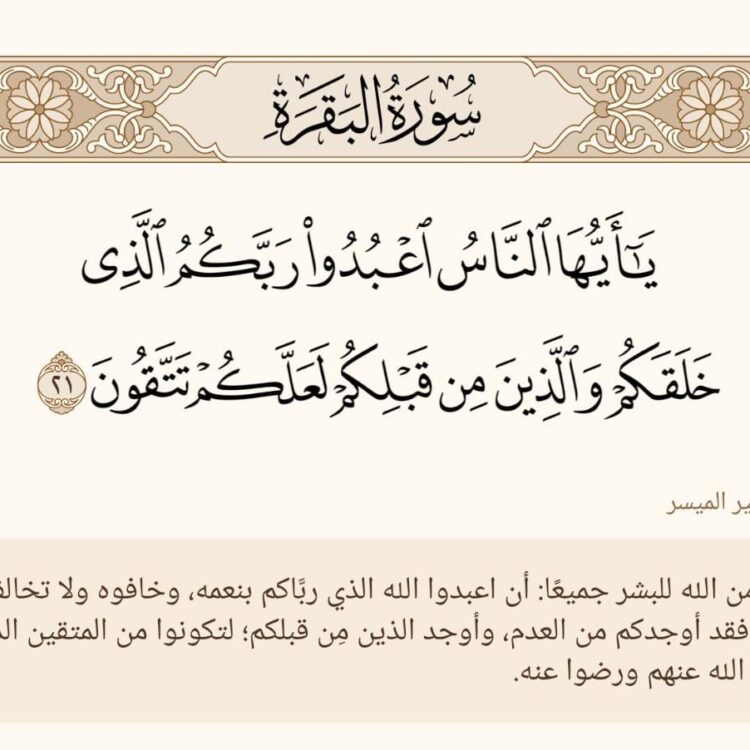 سُورَةُ البَقَرَةِ
يَـٰٓأَيُّهَا ٱلنَّاسُ ٱعۡبُدُواْ رَبَّكُمُ ٱلَّذِى
خَلَقَكُمۡ وَٱلَّذِينَ مِن قَبۡلِكُمۡ لَعَلَّكُمۡ تَتَّقُونَ ٢١
الميسر
الله للبشر جميعًا: أن اعبدوا الله الذي ربَّاكم بنعمه، وخافوه ولا
فقد أوجدكم من العدم، وأوجد الذين مِن قبلكم؛ لتكونوا من المتقين
الله عنهم ورضوا عنه.